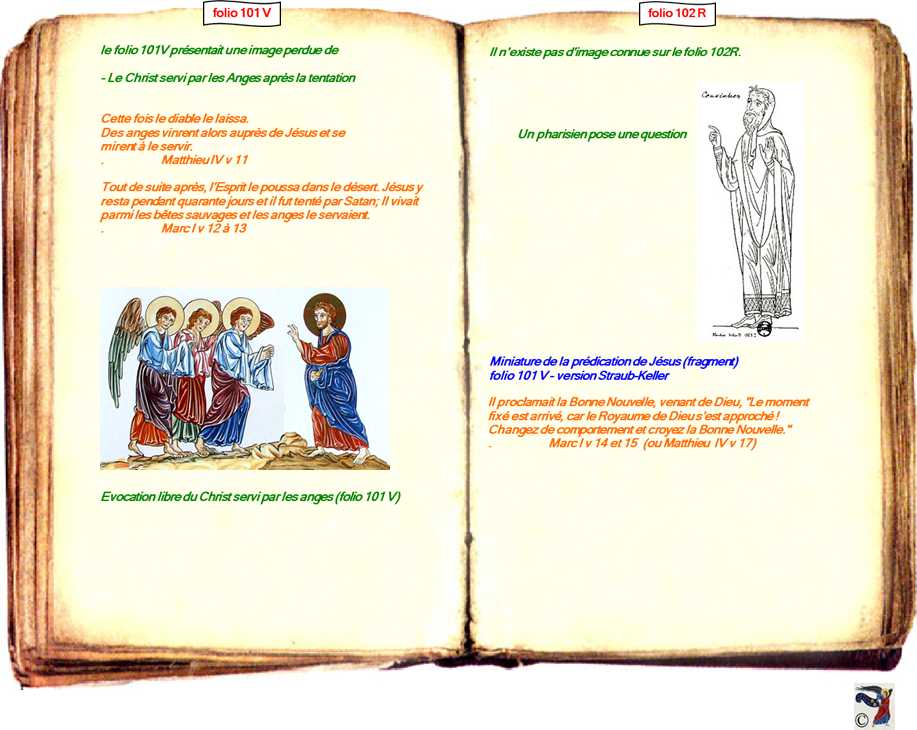 folio 101 V
le folio 101V présentait une image perdue de
- Le Christ servi par les Anges après la tentation
Cette fois le diable le laissa.
Des anges vinrent alors auprès de Jésus et se
mirent à le servir.
. Matthieu IV v 11
Tout de suite après, l'Esprit le poussa dans le désert. Jésus y
resta pendant quarante jours et il fut tenté par Satan; Il vivait
parmi les bêtes sauvages et les anges le servaient.
. Marc I v 12 à 13
Evocation libre du Christ servi par les anges (folio 101 V)
folio 102 R
Il n'existe pas d'image connue sur le folio 102R.
Un pharisien pose une question
Miniature de la prédication de Jésus (fragment)
folio 101 V - version Straub-Keller
Il proclamait la Bonne Nouvelle, venant de Dieu, "Le moment
fixé est arrivé, car le Royaume de Dieu s'est approché !
Changez de comportement et croyez la Bonne Nouvelle."
. Marc I v 14 et 15 (ou Matthieu IV v 17)
©